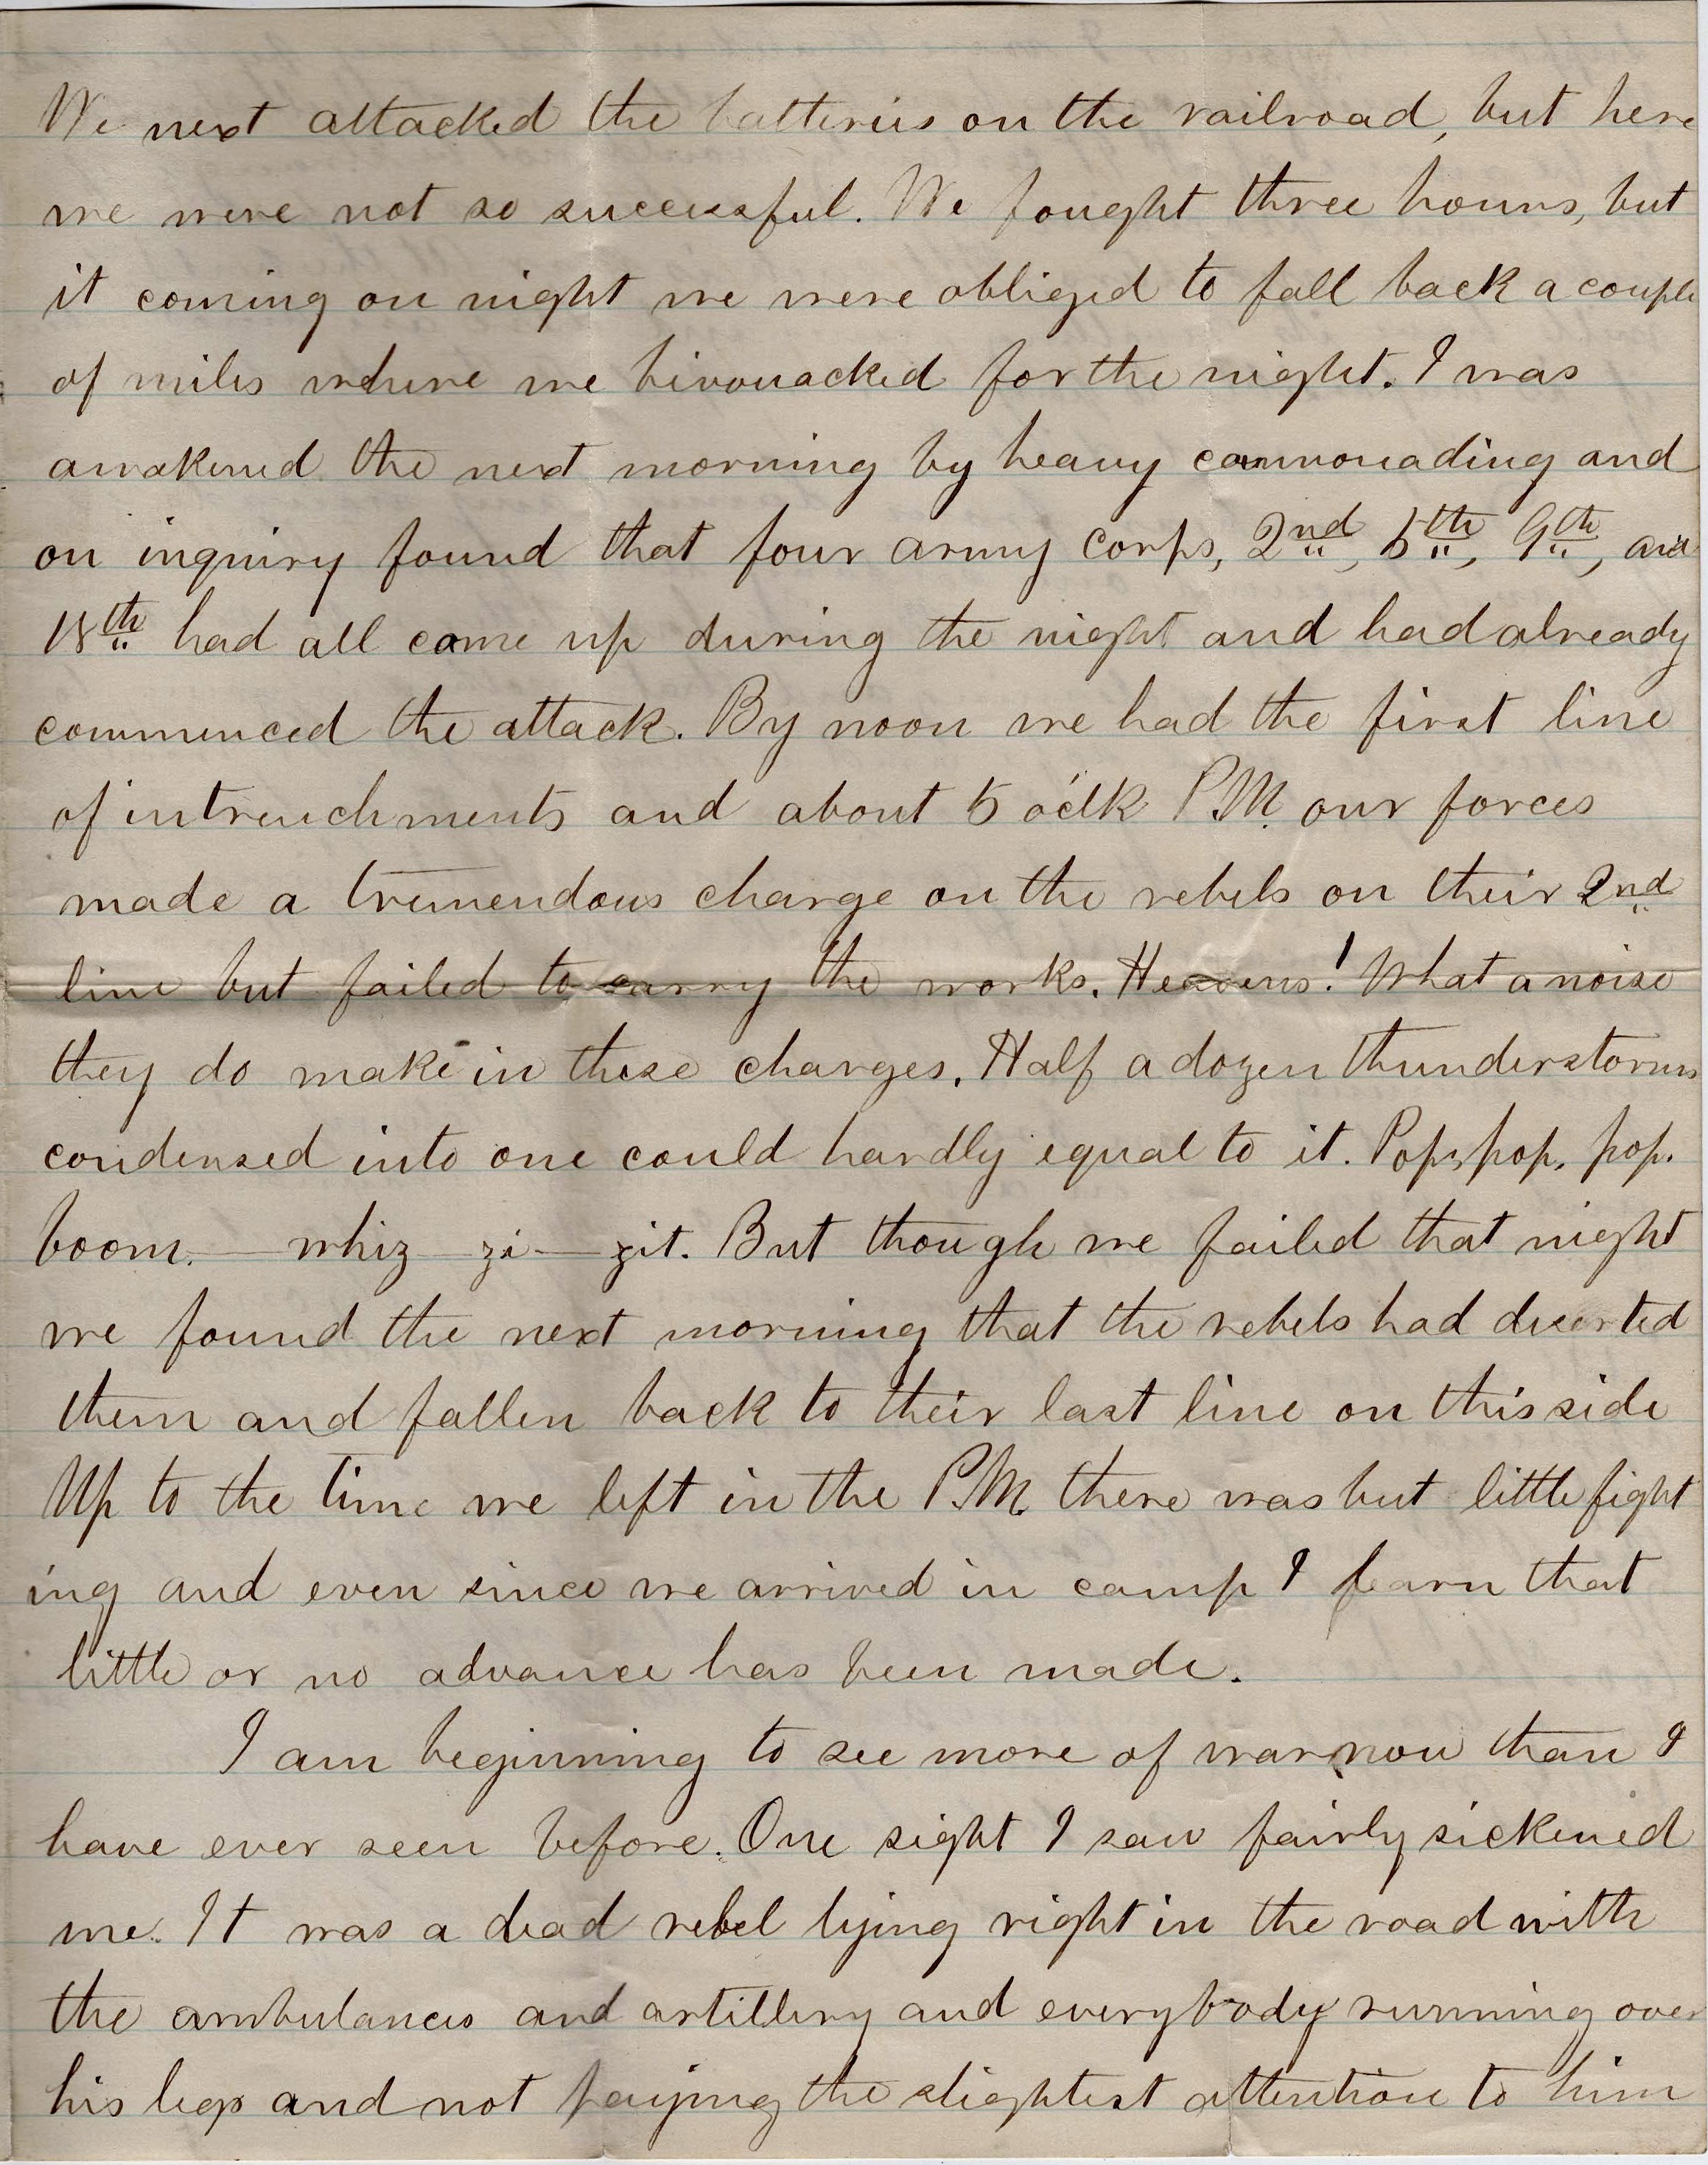 We next attacked the batteries on the railroad, but here
we were not so successful. We fought three hours, but
it coming on night we were obliged to fall back a couple
of miles where we bivouacked for the night. I was
awakened the next morning by heavy cannonading and
on inquiry found that four army corps, 2nd, 5th, 9th, and
18th had all come up during the night and had already
commenced the attack. By noon we had the first line
of intrenchments and about 5 o'clk P.M. our forces
made a tremendous charge on the rebels on their 2nd
line but failed to carry the works. Heavens! What a noise
they do make in these charges. Half a dozen thunderstorms
condensed into one could hardly equal to it. Pop, pop, pop.
boom. — whiz — zi — zit. But though we failed that night
we found the next morning that the rebels had deserted
them and fallen back to their last line on this side
Up to the time we left in the P.M. there was but little fight
ing and even since we arrived in camp I learn that
little or no advance has been made.
I am beginning to see more of war now than I
have ever seen before. One sight I saw fairly sickened
me. It was a dead rebel lying right in the road with
the ambulances and artillery and everybody running over
his legs and not paying the slightest attention to him